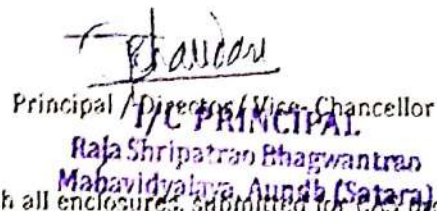 Principal / Director / Vice-Chancellor
I/C PRINCIPAL
Raja Shripatrao Bhagwantrao
Mahavidyalaya, Aundh (Satara)
h all enclosures, submitted for CAS